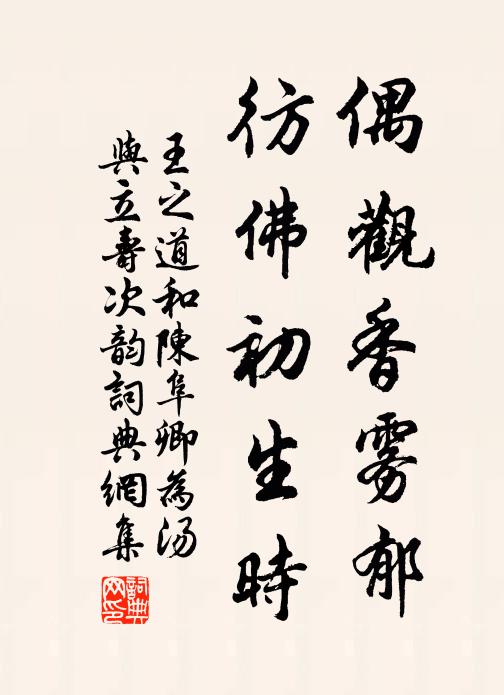 偶觀香雾郁
彷佛初生時
王之道和陳阜卿為汤
與立壽次韵詞典網集
詞典网印